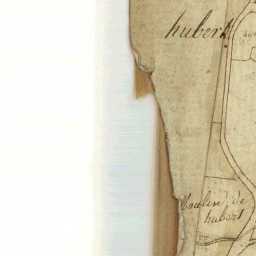 hubert
Moulin de
hubert